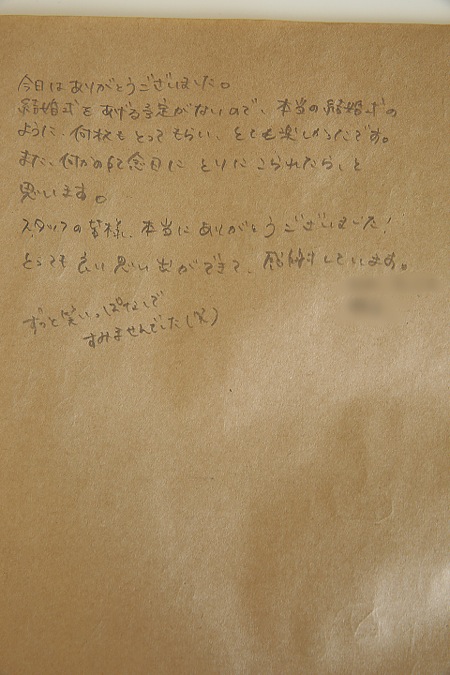 今日はありがとうございました。
結婚式をあげる予定がないので、本当の結婚式の
ように、何枚もとってもらい、とても楽しかったです。
また、何かの記念日に とりにこられたら、と
思います。
スタッフの皆様、本当にありがとうございました!
とっても良い思い出ができて、感謝しています。
ずっと笑いっぱなしで
すみませんでした(笑)